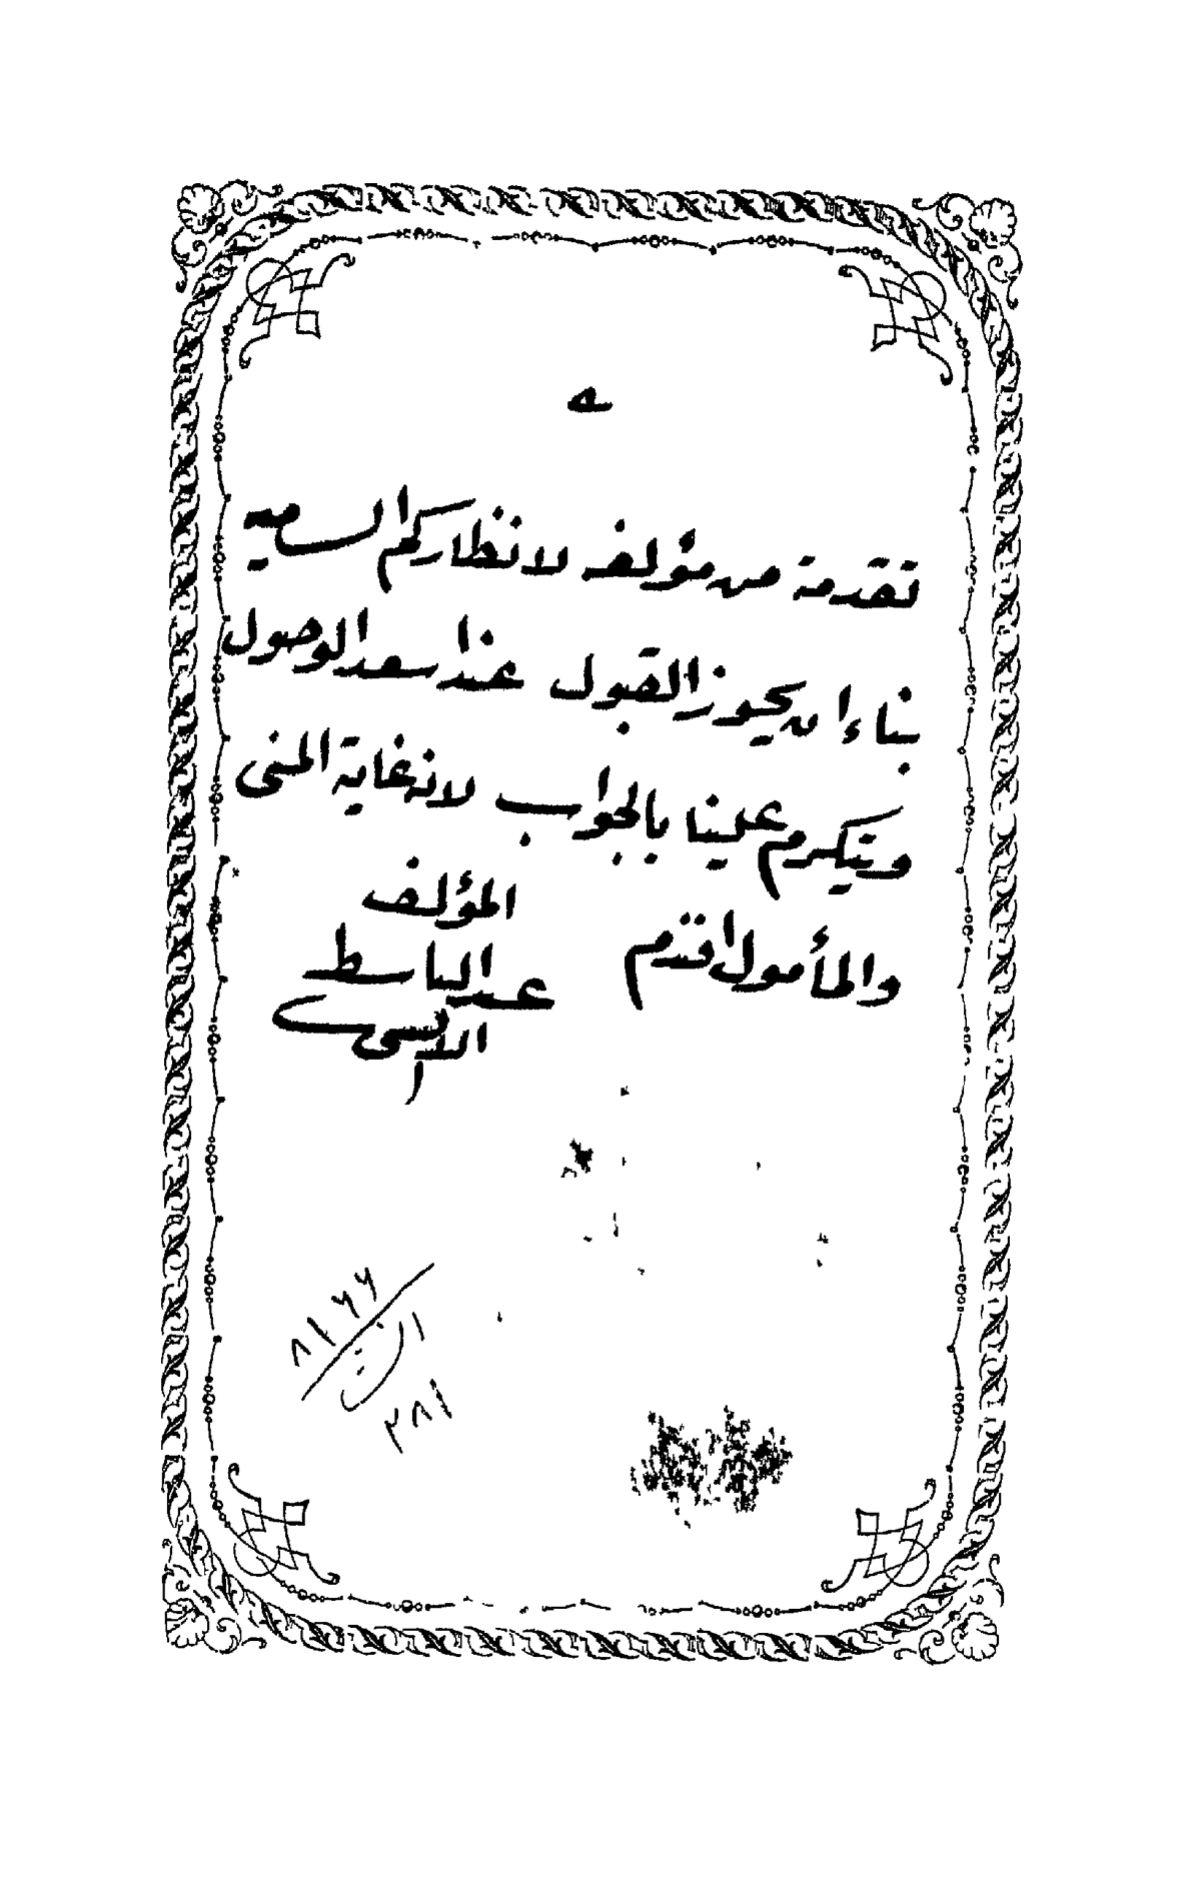 تقدمة من مؤلفه لانظاركم الساميه
بناء ان يحوز القبول عند اسعد الوصول
ويتكرم علينا بالجواب لانه غاية المنى
والمأمول افندم
المؤلف
عبد الباسط
الانسي
٨١٦٦
٢٨١